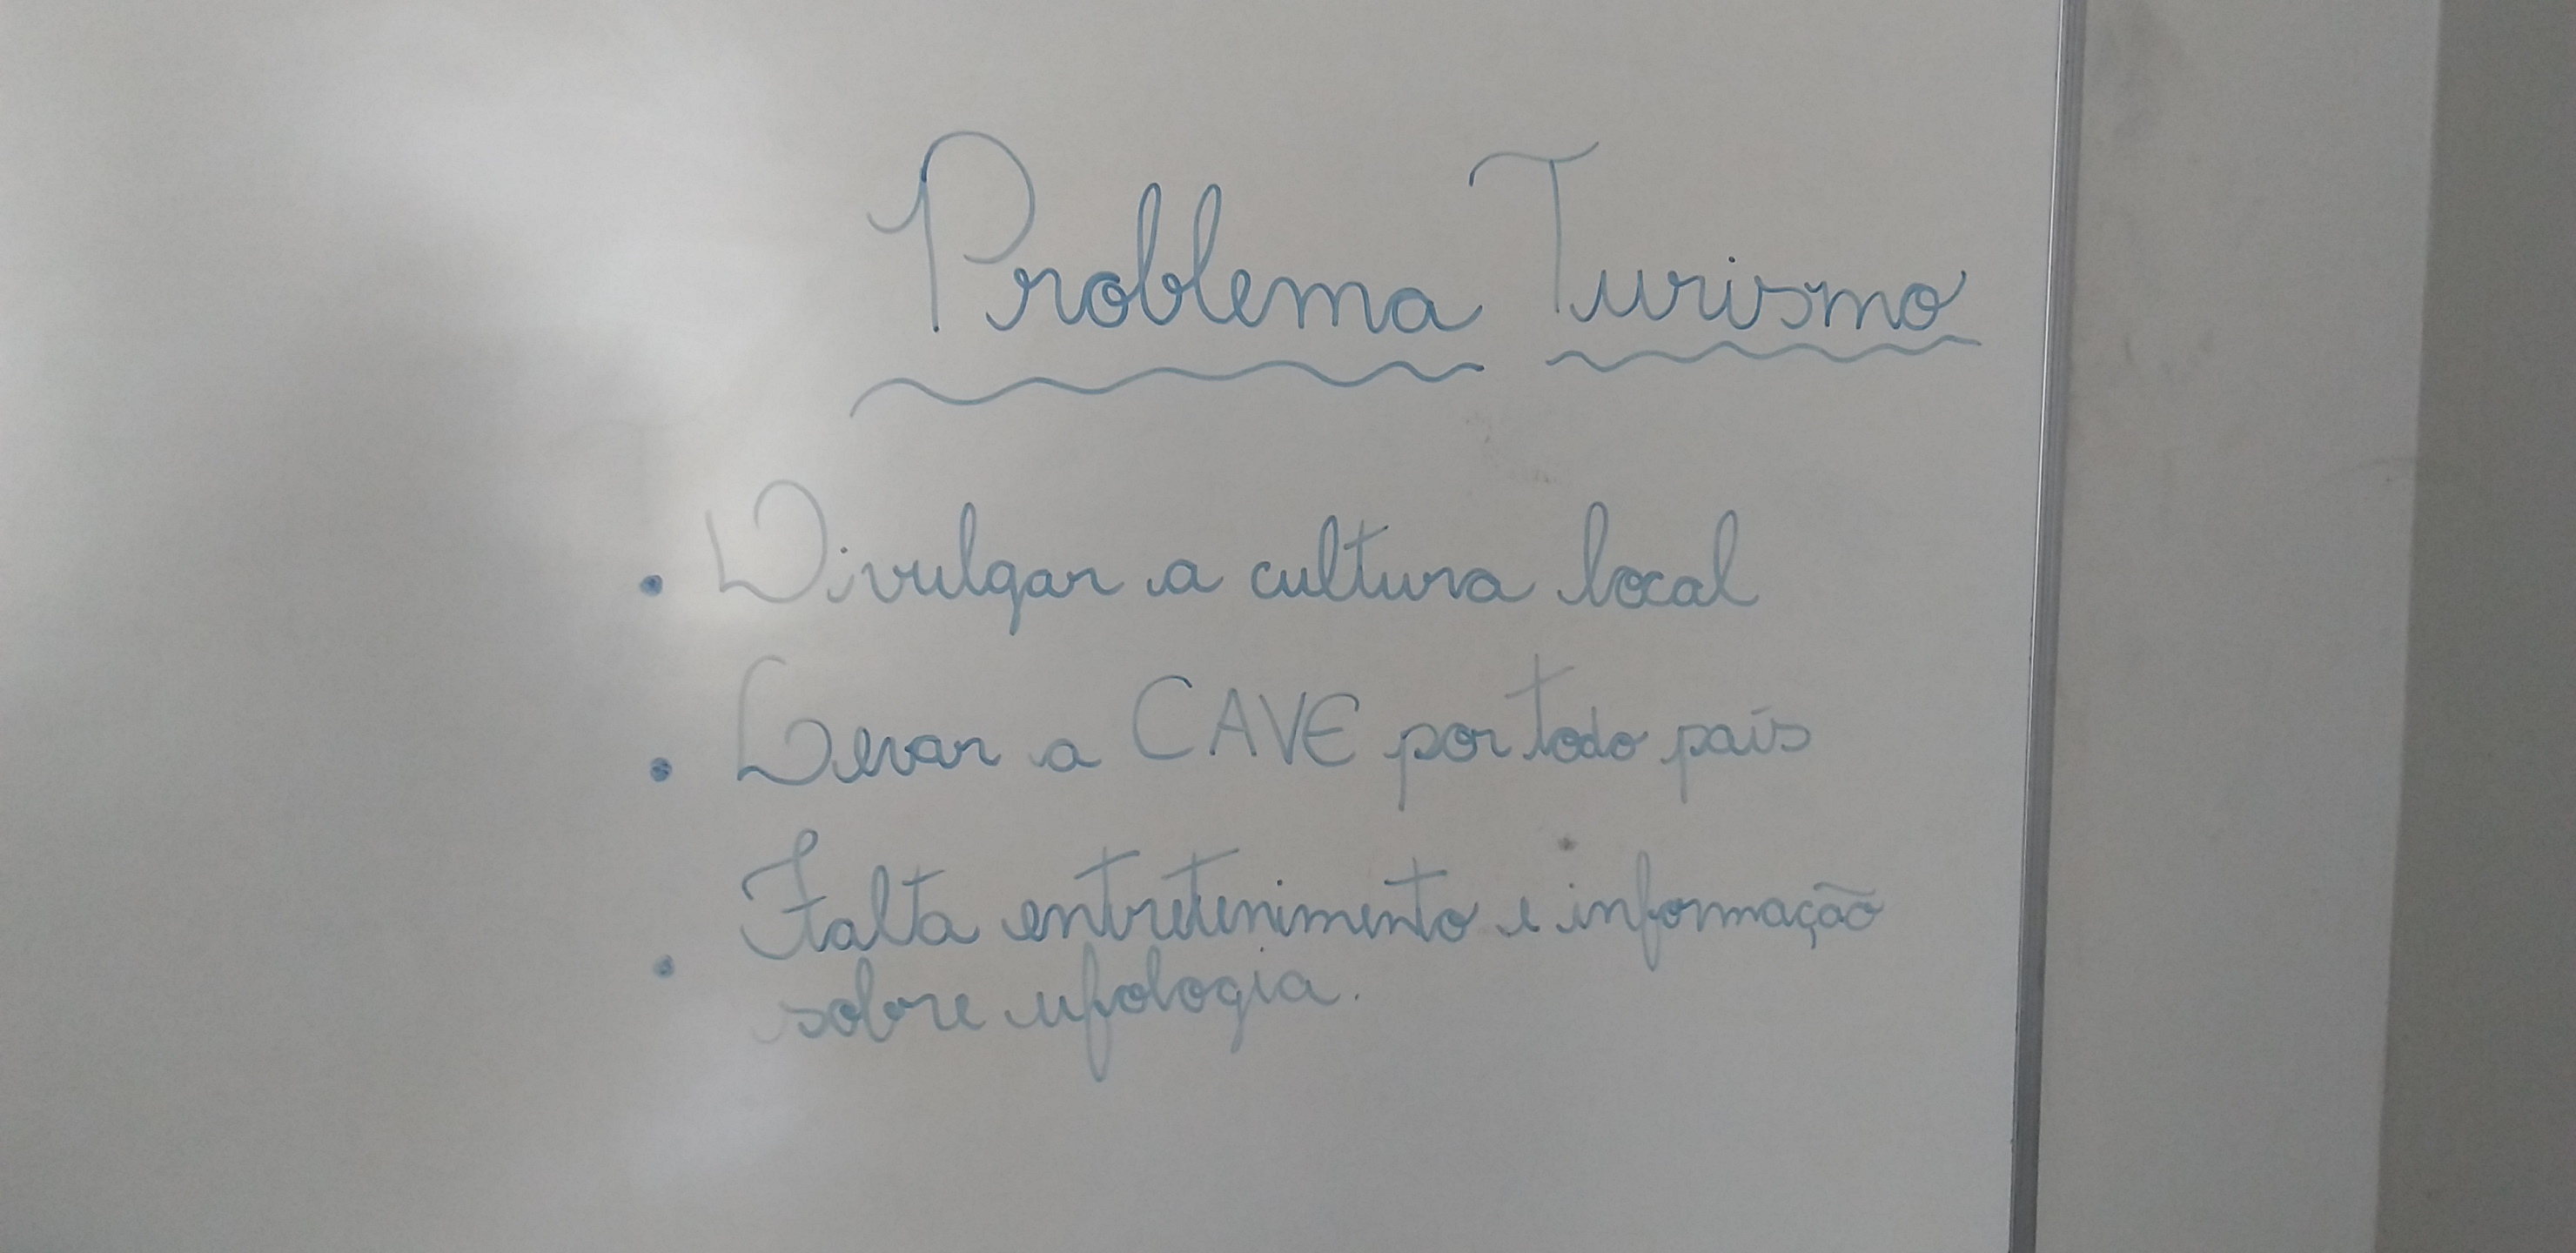 Problema Turismo
• Divulgar a cultura local
• Levar a CAVE por todo país
• Falta entretenimento e informação
sobre ufologia.